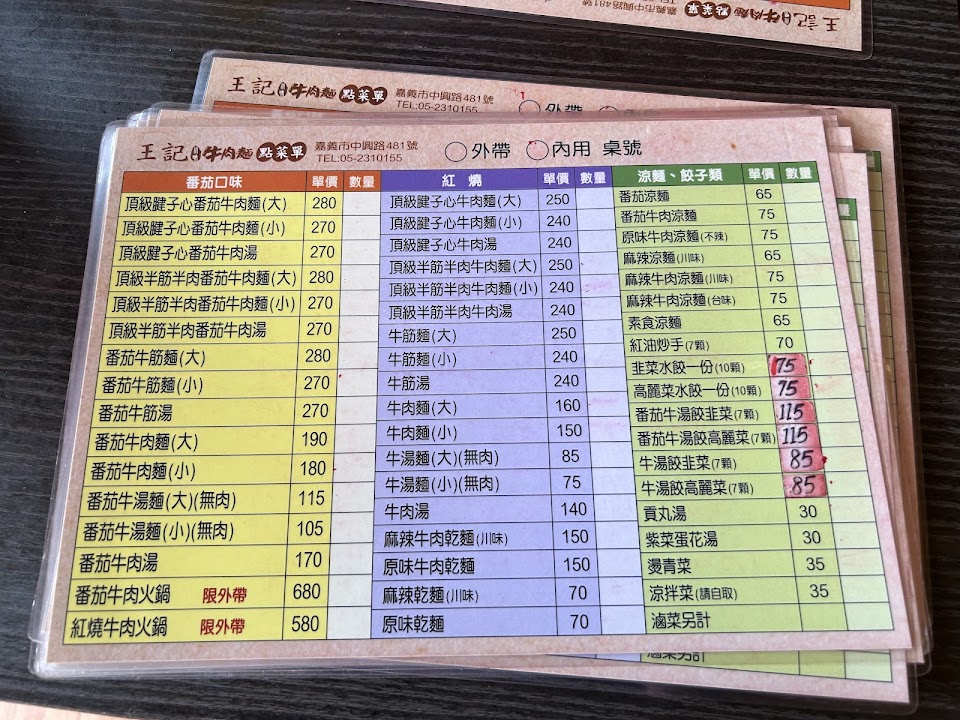 王記 牛肉麵 點菜單 嘉義市中興路481號
TEL:05-2310155
王記 牛肉麵 點菜單 嘉義市中興路481號
TEL:05-2310155 外帶
王記 牛肉麵 點菜單 嘉義市中興路481號 外帶 內用 桌號
TEL:05-2310155
番茄口味 單價 數量 紅燒 單價 數量 涼麵、餃子類 單價 數量
頂級腱子心番茄牛肉麵(大) 280
頂級腱子心番茄牛肉麵(小) 270
頂級腱子心番茄牛肉湯 270
頂級半筋半肉番茄牛肉麵(大) 280
頂級半筋半肉番茄牛肉麵(小) 270
頂級半筋半肉番茄牛肉湯 270
番茄牛筋麵(大) 280
番茄牛筋麵(小) 270
番茄牛筋湯 270
番茄牛肉麵(大) 190
番茄牛肉麵(小) 180
番茄牛湯麵(大)(無肉) 115
番茄牛湯麵(小)(無肉) 105
番茄牛肉湯 170
番茄牛肉火鍋 限外帶 680
紅燒牛肉火鍋 限外帶 580
頂級腱子心牛肉麵(大) 250
頂級腱子心牛肉麵(小) 240
頂級腱子心牛肉湯 240
頂級半筋半肉牛肉麵(大) 250
頂級半筋半肉牛肉麵(小) 240
頂級半筋半肉牛肉湯 240
牛筋麵(大) 250
牛筋麵(小) 240
牛筋湯 240
牛肉麵(大) 160
牛肉麵(小) 150
牛湯麵(大)(無肉) 85
牛湯麵(小)(無肉) 75
牛肉湯 140
麻辣牛肉乾麵(川味) 150
原味牛肉乾麵 150
麻辣乾麵(川味) 70
原味乾麵 70
番茄涼麵 65
番茄牛肉涼麵 75
原味牛肉涼麵(不辣) 75
麻辣涼麵(川味) 65
麻辣牛肉涼麵(川味) 75
麻辣牛肉涼麵(台味) 75
素食涼麵 65
紅油炒手(7顆) 70
韭菜水餃一份(10顆) 75
高麗菜水餃一份(10顆) 75
番茄牛湯餃韭菜(7顆) 115
番茄牛湯餃高麗菜(7顆) 115
牛湯餃韭菜(7顆) 85
牛湯餃高麗菜(7顆) 85
貢丸湯 30
紫菜蛋花湯 30
燙青菜 35
涼拌菜(請自取) 35
滷菜另計
滷菜另計